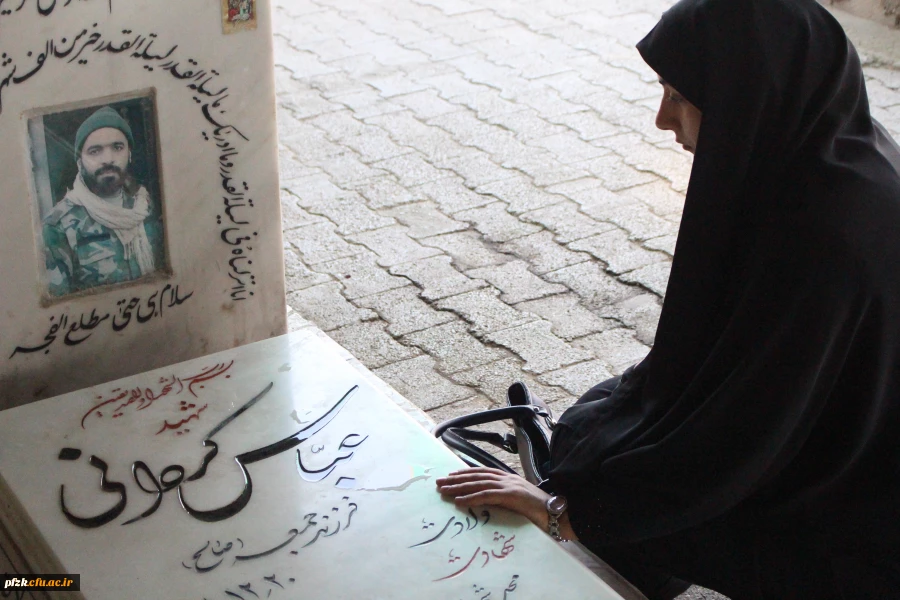 انا انزلناه فی لیلة القدر وما ادریک ما لیلة القدر لیلة القدر خیر من الف شهر
سلام هی حتی مطلع الفجر
بسم رب الشهداء والصدیقین
شهید
عبّاس کردانی
فرزند جمعه (صالح)
ولادت
شهادت
۱۲.۲۰
pfzk.cfu.ac.ir